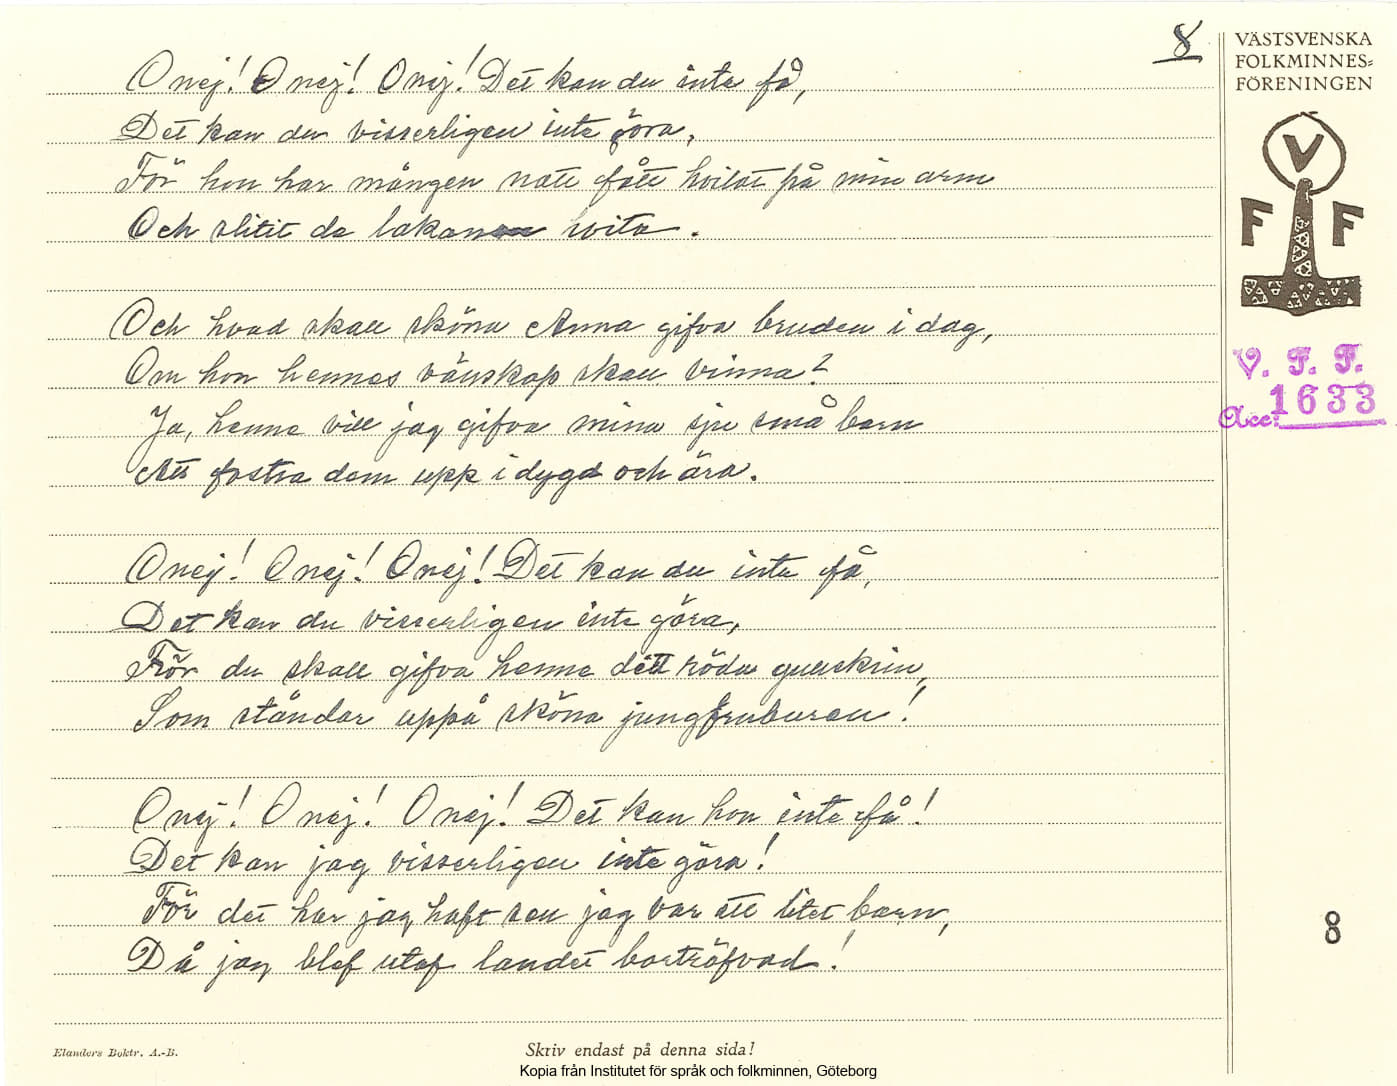 8
VÄSTSVENSKA
FOLKMINNES=
FÖRENINGEN
V
F F
V. F. F.
Acc: 1633
O nej! O nej! O nej! Det kan du inte få,
Det kan du visserligen inte göra,
För hon har mången natt fått hvilat på min arm
Och slitit de lakan hvita.
Och hvad skall sköna Anna gifva bruden i dag,
Om hon hennes vänskap skall vinna?
Ja, henne vill jag gifva mina sju små barn
Att fostra dem upp i dygd och ära.
O nej! O nej! O nej! Det kan du inte få,
Det kan du visserligen inte göra,
För du skall gifva henne dett röda gullskrin,
Som ståndar uppå sköna jungfruburen!
O nej! O nej! O nej! Det kan hon inte få!
Det kan jag visserligen inte göra!
För det har jag haft sen jag var ett litet barn,
Då jag blef utaf landet bortröfvad!
8
Elanders Boktr. A.-B.
Skriv endast på denna sida!
Kopia från Institutet för språk och folkminnen, Göteborg